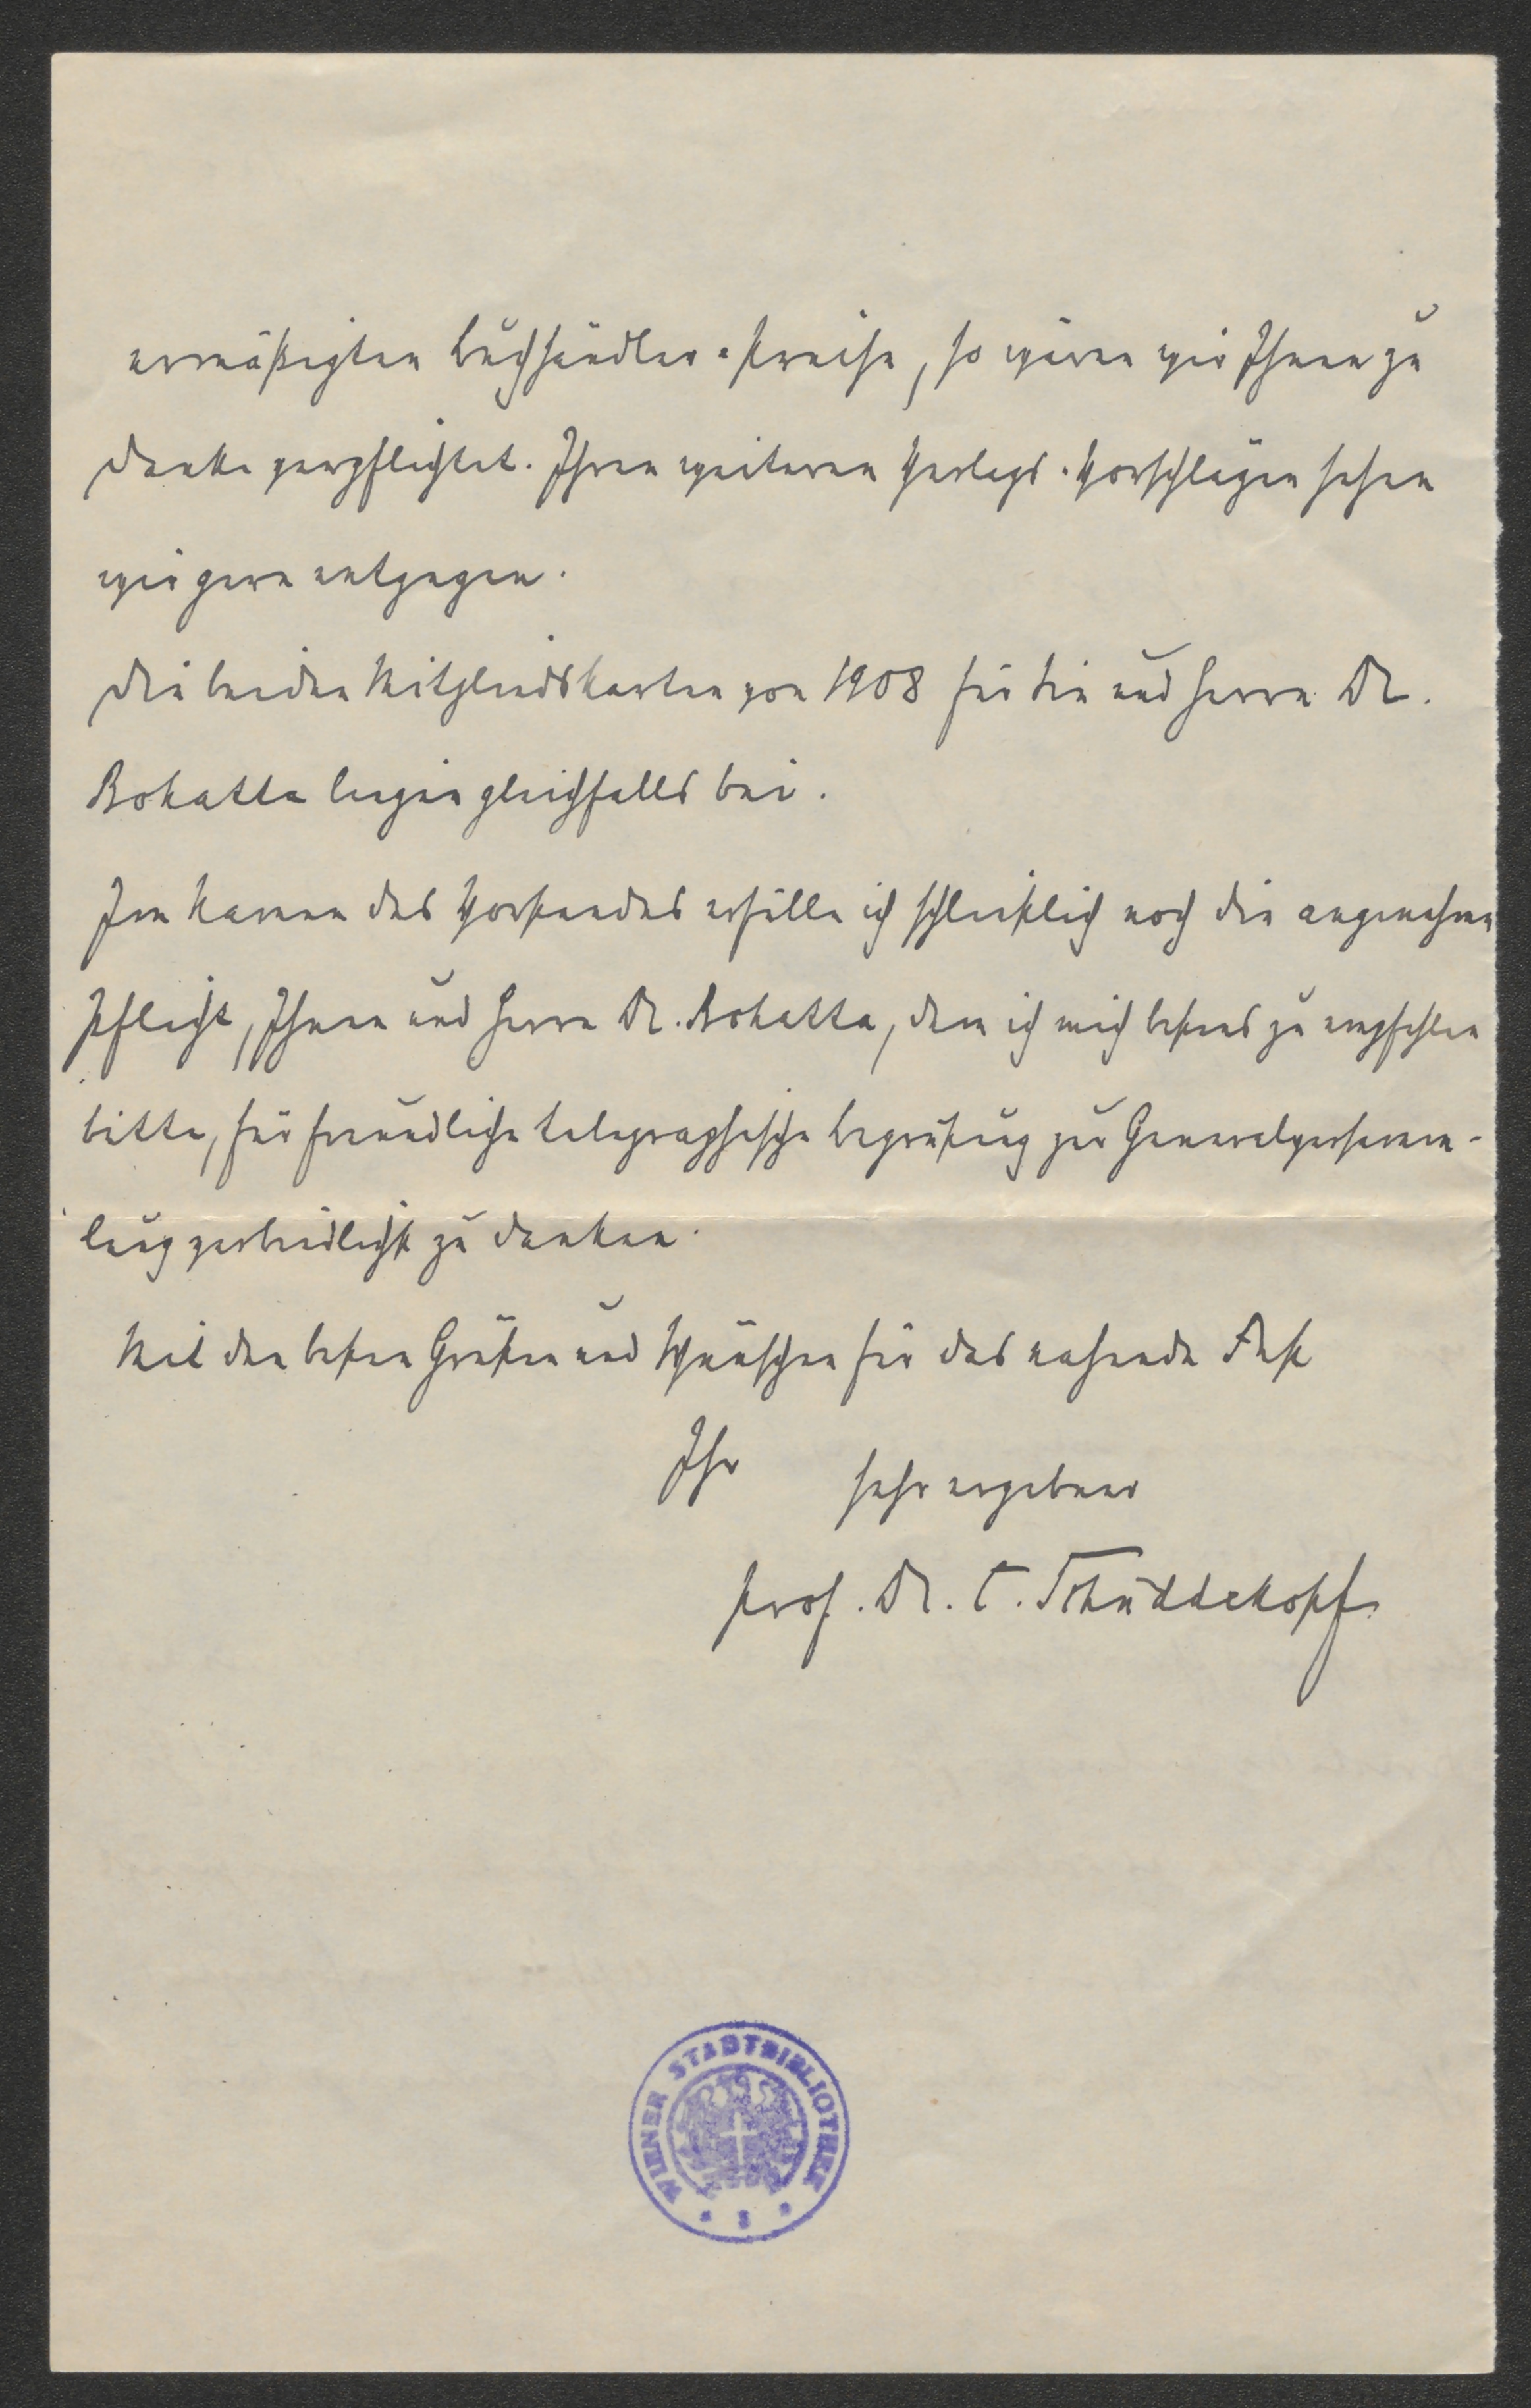 ermäßigten Buchhändler-Preise, so wären wir Ihnen zu
Danke verpflichtet. Ihren weiteren Verlags-Vorschlägen sehen
wir gern entgegen.
Die beiden Mitgliedskarten von 1908 für Sie und Herrn Dr.
Bohatta liegen gleichfalls bei.
Im Namen des Vorstandes erfülle ich schließlich noch die angenehme
Pflicht, Ihnen und Herrn Dr. Bohatta, dem ich mich bestens zu empfehlen
bitte, für freundliche telegraphische Begrüßung zur Generalversamm-
lung verbindlichst zu danken.
Mit den besten Grüßen und Wünschen für das nahende Fest
Ihr sehr ergebner
Prof. Dr. C. Schüddekopf
WIENER STADTBIBLIOTHEK